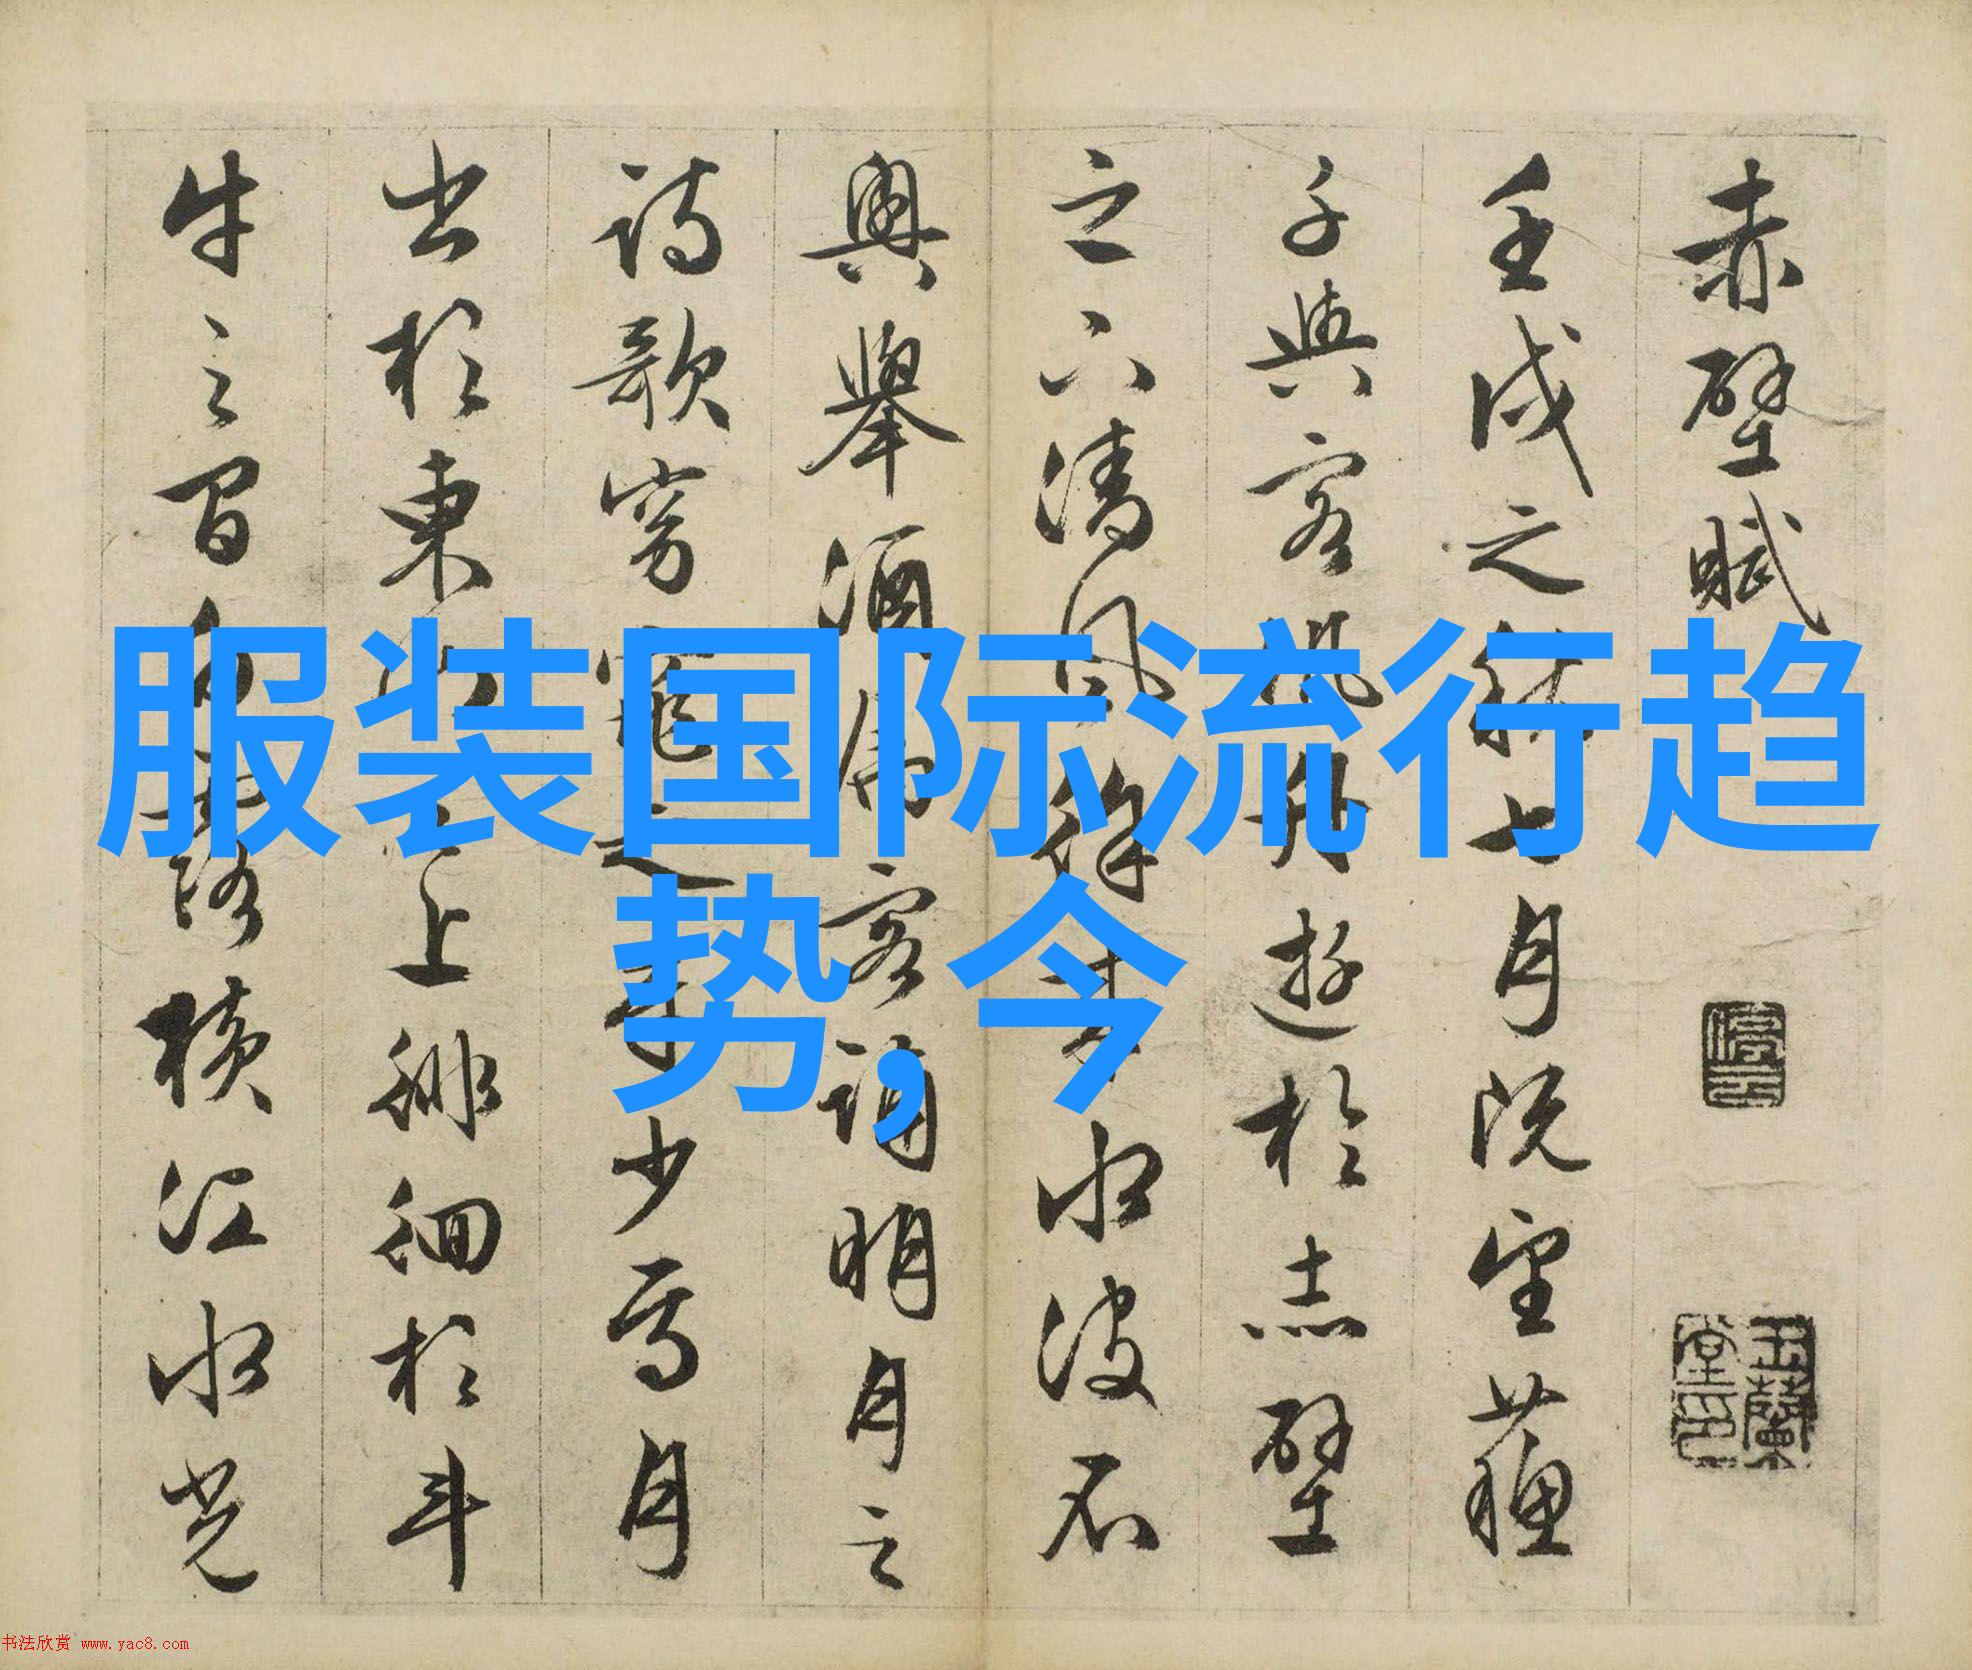 服装国际流行趋
势,今
赤壁賦
停云
玉蘭
堂印
壬戌之秋七月既望蘇
子與客泛舟遊於赤壁
之下清風徐來水波不
興舉酒屬客誦明月之
詩歌窈窕之章少焉月
出於東山之上徘徊於斗
牛之間白露橫江水光
书法欣赏 www.yac8.com